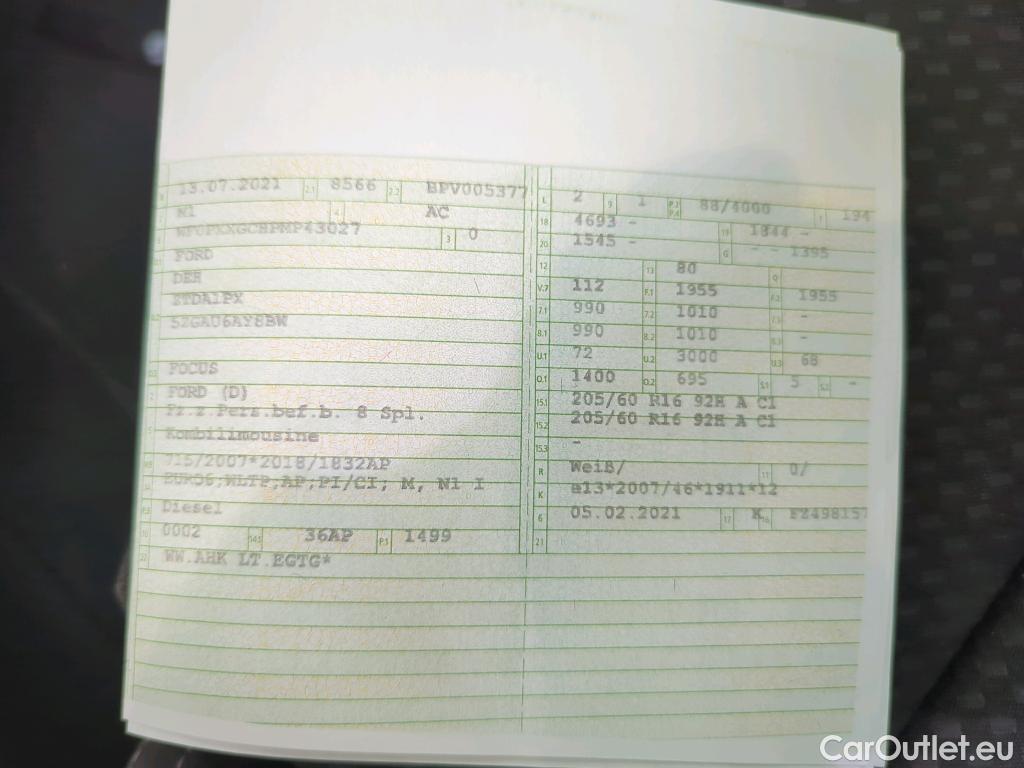 13.07.2021 2.1 8566 2.2 BPV005377
N1 4 AC
3 0
FORD
DEH
5ZGAU6AY8BW
FOCUS
FORD (D)
Fz.z.Pers.bef.b. 8 Spl.
Kombilimousine
715/2007*2018/1832AP
EURO6;WLTP;AP;PI/CI; M, N1 I
Diesel
10 0002 14.1 36AP P.1 1499
22 WW.AHK LT.EGTG*
L 2 9 1 P.2 P.4 88/4000 T 194
18 4693 - 19 1844 -
20 1545 - G - - 1395
12 13 80 Q
V.7 112 F.1 1955 F.2 1955
7.1 990 7.2 1010 7.3 -
8.1 990 8.2 1010 8.3 -
U.1 72 U.2 3000 U.3 68
O.1 1400 O.2 695 S.1 5 S.2 -
15.1 205/60 R16 92H A C1
15.2 205/60 R16 92H A C1
15.3 -
R Weiß/ 11 0/
K e13*2007/46*1911*12
6 05.02.2021 17 K 16 FZ498157
21
CarOutlet.eu